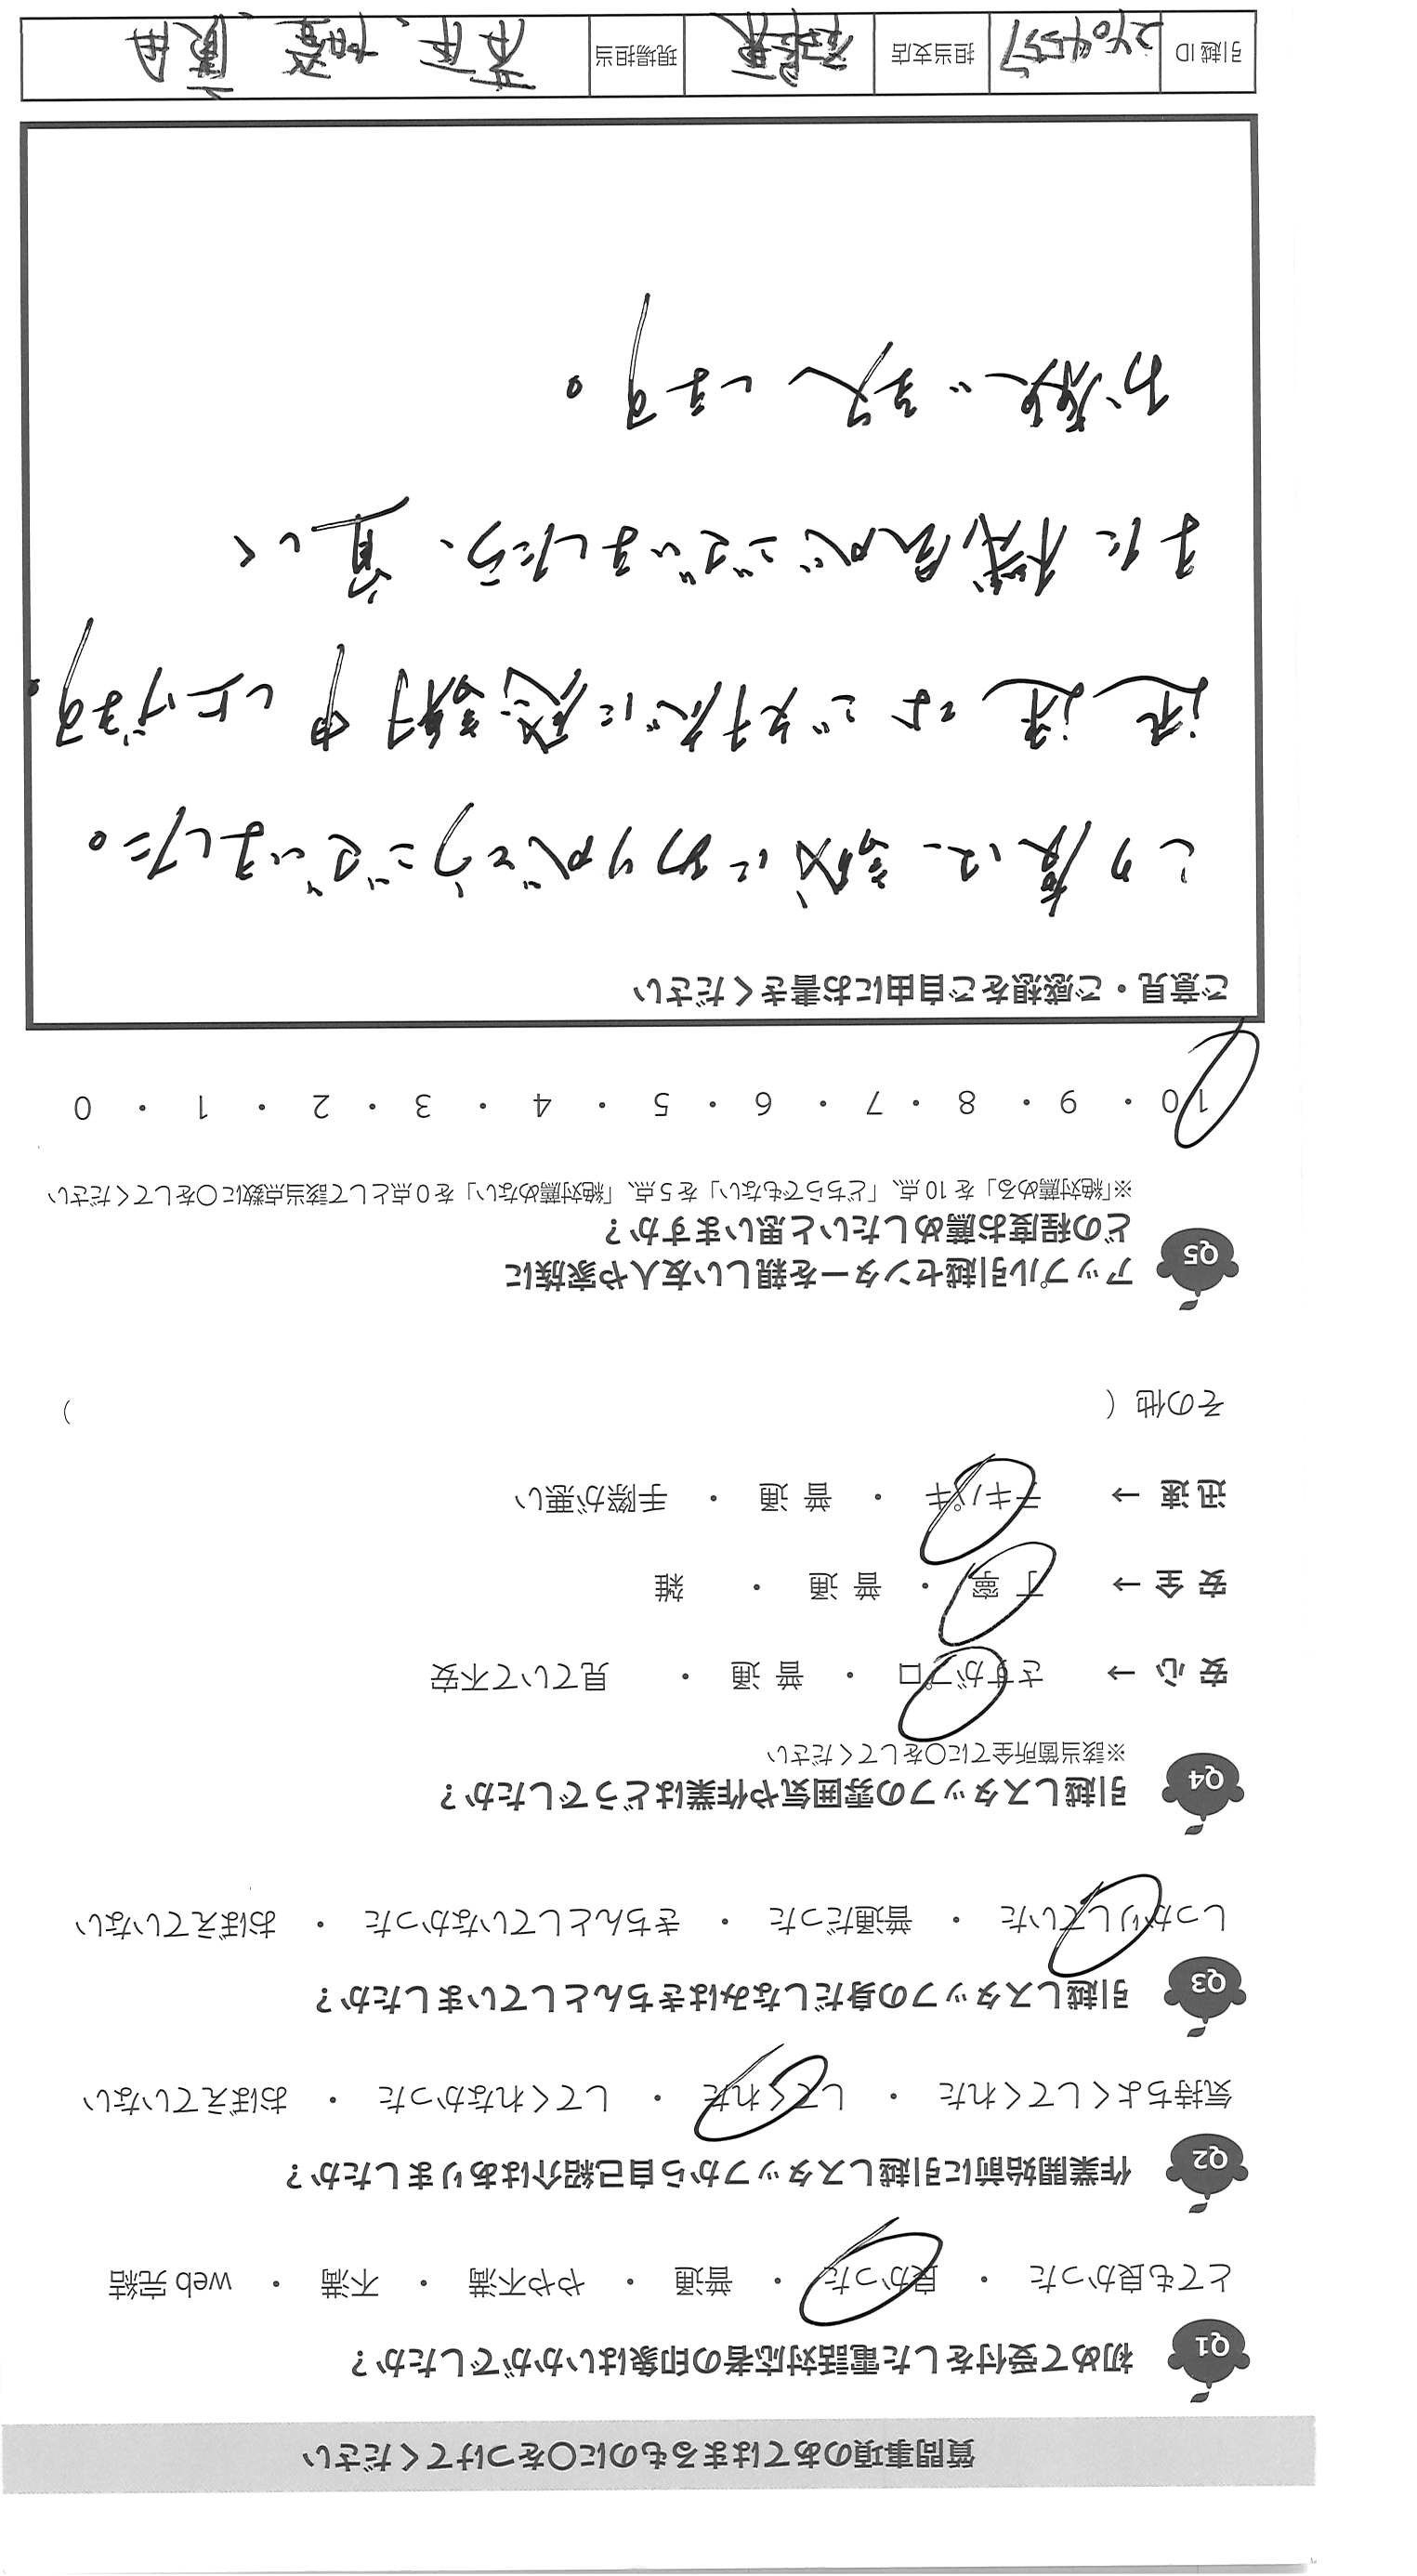 質問事項のあてはまるものに〇をつけてください
Q1 初めて受付をした電話対応者の印象はいかがでしたか?
とても良かった ・ 良かった ・ 普通 ・ やや不満 ・ 不満 ・ web 完結
Q2 作業開始前に引越しスタッフから自己紹介はありましたか?
気持ちよくしてくれた ・ してくれた ・ してくれなかった ・ おぼえていない
Q3 引越しスタッフの身だしなみはきちんとしていましたか?
しっかりしていた ・ 普通だった ・ きちんとしていなかった ・ おぼえていない
Q4 引越しスタッフの雰囲気や作業はどうでしたか?
※該当箇所全てに〇をしてください
安 心 → さすがプロ ・ 普 通 ・ 見ていて不安
安 全 → 丁 寧 ・ 普 通 ・ 雑
迅 速 → テキパキ ・ 普 通 ・ 手際が悪い
その他 ( )
Q5 アップル引越センターを親しい友人や家族に
どの程度お薦めしたいと思いますか?
※「絶対薦める」を 10 点、「どちらでもない」を 5 点、「絶対薦めない」を 0 点として該当点数に〇をしてください
10 ・ 9 ・ 8 ・ 7 ・ 6 ・ 5 ・ 4 ・ 3 ・ 2 ・ 1 ・ 0
ご意見・ご感想をご自由にお書きください
この度は、誠にありがとうございました。
迅速なご対応に感謝申し上げます。
また機会がございましたら、宜しく
お願い致します。
引越 ID 2404557 担当支店 現場担当